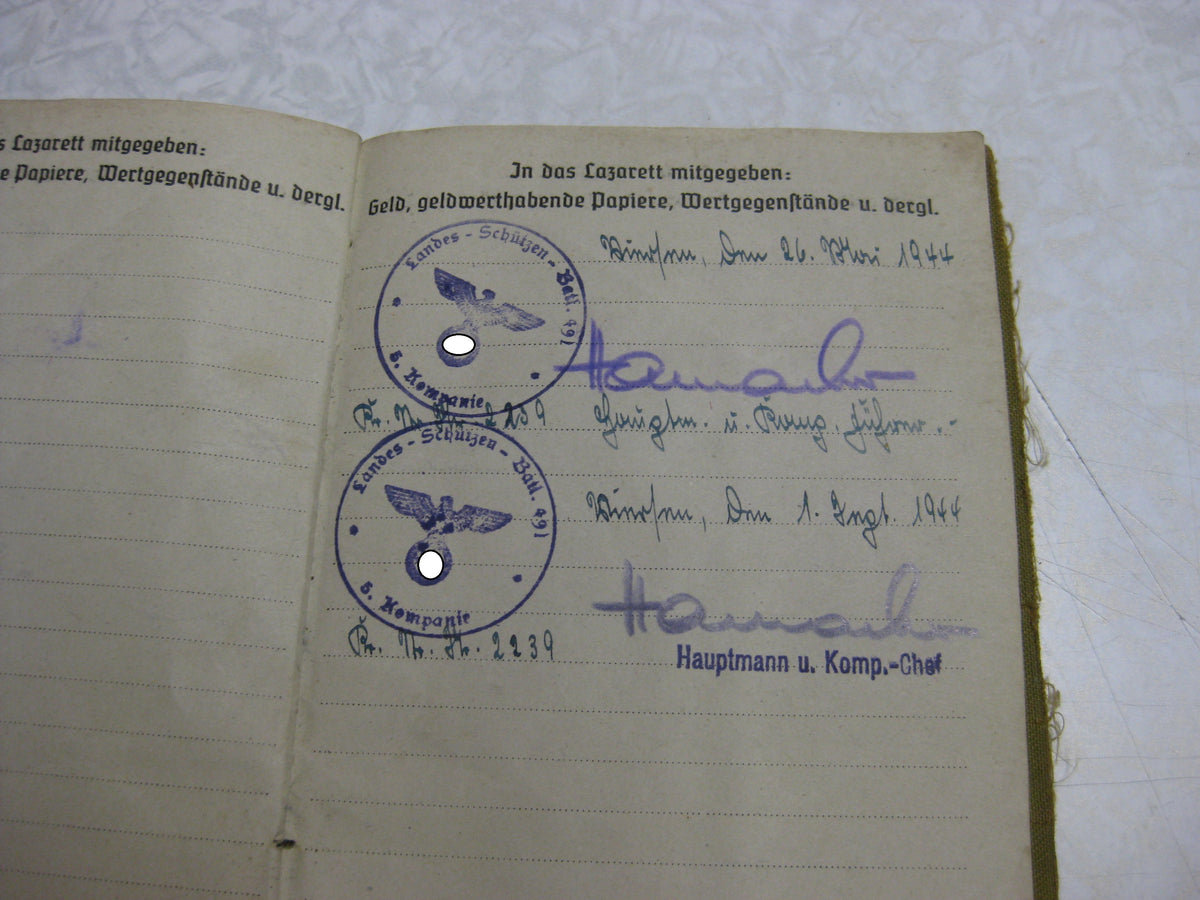 s Lazarett mitgegeben:
e Papiere, Wertgegenstände u. dergl.
In das Lazarett mitgegeben:
Geld, geldwerthabende Papiere, Wertgegenstände u. dergl.
Landes-Schützen-Batl. 491
5. Kompanie
Viersen, den 26. Mai 1944
Hauptm. u. Komp. Führer.-
Landes-Schützen-Batl. 491
5. Kompanie
Viersen, den 1. Sept. 1944
2239
Hauptmann u. Komp.-Chef